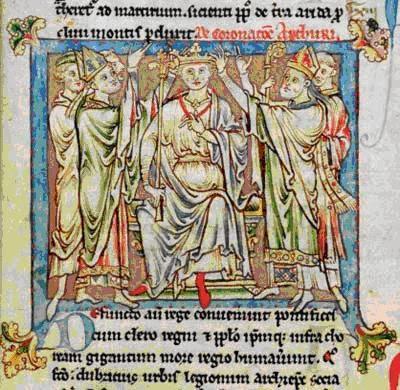 theret ad martirium. sitienti ppo de tra arida p
cliui montis pduxit. De coronacōe Arthuri.
Defuncto aū rege conveniunt pontifices
cum clero regni & pplo ipmq; infra cho
ream gigantum more regio humauerunt. Et
dubricius urbis legionum archiepc socia